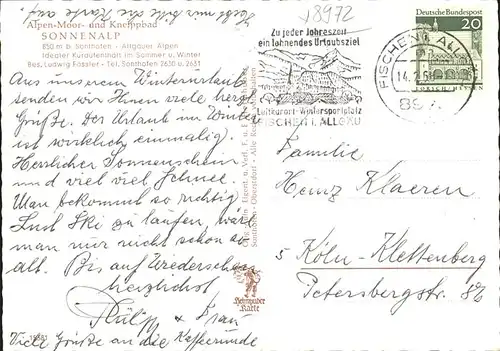 Alpen-Moor- und Kneippbad
SONNENALP
850 m ü. Sonthofen - Allgäuer Alpen
Idealer Kuraufenthalt im Sommer u. Winter
Bes. Ludwig Fässler - Tel. Sonthofen 2630 u. 2631
Aus unserem Winterurlaub
senden wir Ihnen viele herzl.
Grüße. Der Urlaub im Winter
ist wirklich einmalig.
Herrlicher Sonnenschein
und viel viel Schnee.
Man bekommt so richtig
Lust Ski zu laufen, wäre
man nur nicht schon so
alt. Bis auf Wiedersehen
herzlichst
Philipp & Frau
Viele Grüße an die Kafferunde
8972
Zu jeder Jahreszeit
ein lohnendes Urlaubsziel
Luftkurort - Wintersportplatz
FISCHEN I. ALLGÄU
FISCHEN I. ALLG
14.2.
897
Deutsche Bundespost
20
LORSCH/HESSEN
Familie
Heinz Klaeren
5 Köln-Klettenberg
Petersbergstr. 82
Hofmuber
Karte